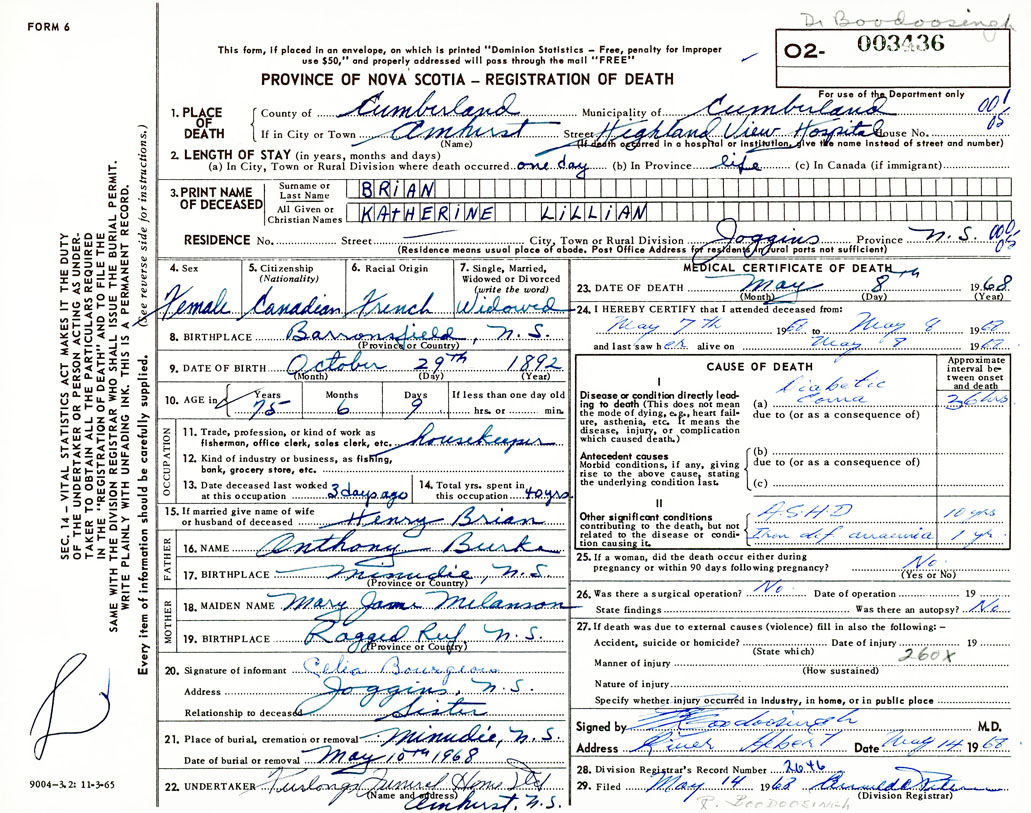 Dr Boodoosingh
FORM 6
This form, if placed in an envelope, on which is printed "Dominion Statistics – Free, penalty for improper
use $50," and properly addressed will pass through the mail "FREE"
O2- 003436
PROVINCE OF NOVA SCOTIA – REGISTRATION OF DEATH
For use of the Department only
001
05
1. PLACE OF DEATH
County of Cumberland Municipality of Cumberland
If in City or Town Amhurst Street Highland View Hospital House No.
(Name) (If death occurred in a hospital or institution, give the name instead of street and number)
2. LENGTH OF STAY (in years, months and days)
(a) In City, Town or Rural Division where death occurred one day (b) In Province life (c) In Canada (if immigrant)
3. PRINT NAME OF DECEASED
Surname or Last Name BRIAN
All Given or Christian Names KATHERINE LILLIAN
RESIDENCE No. Street City, Town or Rural Division Joggins Province N.S.
(Residence means usual place of abode. Post Office Address for residents in rural parts not sufficient)
4. Sex Female
5. Citizenship (Nationality) Canadian
6. Racial Origin French
7. Single, Married, Widowed or Divorced (write the word) Widowed
8. BIRTHPLACE Barronsfield, N.S.
(Province or Country)
9. DATE OF BIRTH October 29th 1892
(Month) (Day) (Year)
10. AGE in Years 75 Months 6 Days 9 If less than one day old hrs. or min.
OCCUPATION
11. Trade, profession, or kind of work as
fisherman, office clerk, sales clerk, etc. housekeeper
12. Kind of industry or business, as fishing,
bank, grocery store, etc.
13. Date deceased last worked at this occupation 3 days ago
14. Total yrs. spent in this occupation 40 yrs.
15. If married give name of wife
or husband of deceased Henry Brian
FATHER
16. NAME Anthony Burke
17. BIRTHPLACE Minudie, N.S.
(Province or Country)
MOTHER
18. MAIDEN NAME Mary Jane Melanson
19. BIRTHPLACE Ragged Reef, N.S.
(Province or Country)
20. Signature of informant Celia Bourgeois
Address Joggins, N.S.
Relationship to deceased Sister
21. Place of burial, cremation or removal Minudie, N.S.
Date of burial or removal May 10th 1968
22. UNDERTAKER Furlong Funeral Home Ltd
(Name and address) Amhurst, N.S.
MEDICAL CERTIFICATE OF DEATH
23. DATE OF DEATH May 8th 1968
(Month) (Day) (Year)
24. I HEREBY CERTIFY that I attended deceased from:
May 7th 1968 to May 8 1968
and last saw her alive on May 8 1968
CAUSE OF DEATH
Approximate interval between onset and death
I
Disease or condition directly leading to death (This does not mean the mode of dying, e.g., heart failure, asthenia, etc. It means the disease, injury, or complication which caused death.)
(a) Diabetic Coma 36 hrs
due to (or as a consequence of)
Antecedent causes
Morbid conditions, if any, giving rise to the above cause, stating the underlying condition last.
(b)
due to (or as a consequence of)
(c)
II
Other significant conditions
contributing to the death, but not related to the disease or condition causing it.
A.S.H.D 10 yrs
Iron def anaemia 1 yr.
25. If a woman, did the death occur either during
pregnancy or within 90 days following pregnancy? No
(Yes or No)
26. Was there a surgical operation? No Date of operation 19
State findings Was there an autopsy? No
27. If death was due to external causes (violence) fill in also the following:–
Accident, suicide or homicide? Date of injury 19
(State which)
260X
Manner of injury
(How sustained)
Nature of injury
Specify whether injury occurred in industry, in home, or in public place
Signed by Boodoosingh M.D.
Address River Hbert Date May 14 1968
28. Division Registrar's Record Number 2646
29. Filed May 14 1968
(Division Registrar)
R. BOODOOSINGH
SEC. 14 – VITAL STATISTICS ACT MAKES IT THE DUTY
OF THE UNDERTAKER OR PERSON ACTING AS UNDER-
TAKER TO OBTAIN ALL THE PARTICULARS REQUIRED
IN THE "REGISTRATION OF DEATH" AND TO FILE THE
SAME WITH THE DIVISION REGISTRAR WHO SHALL ISSUE THE BURIAL PERMIT.
WRITE PLAINLY WITH UNFADING INK. THIS IS A PERMANENT RECORD.
Every item of information should be carefully supplied. (See reverse side for instructions.)
9004-3.2: 11-3-65